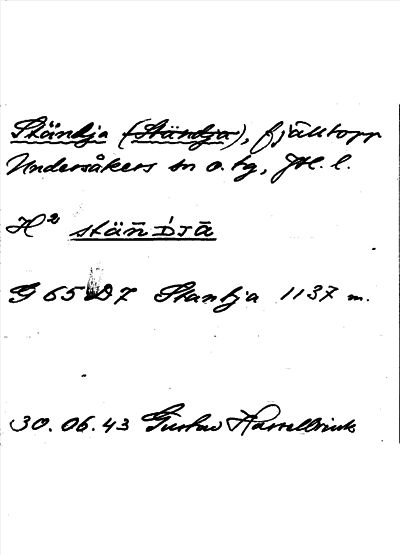 Ständja (Ständja), fjälltopp
Undersåkers sn o. tg, Jtl. l.
H² stän̄ D́ J ā
G 65 D 7 Stantja 1137 m.
30.06.43 Gustav Hasselbrink